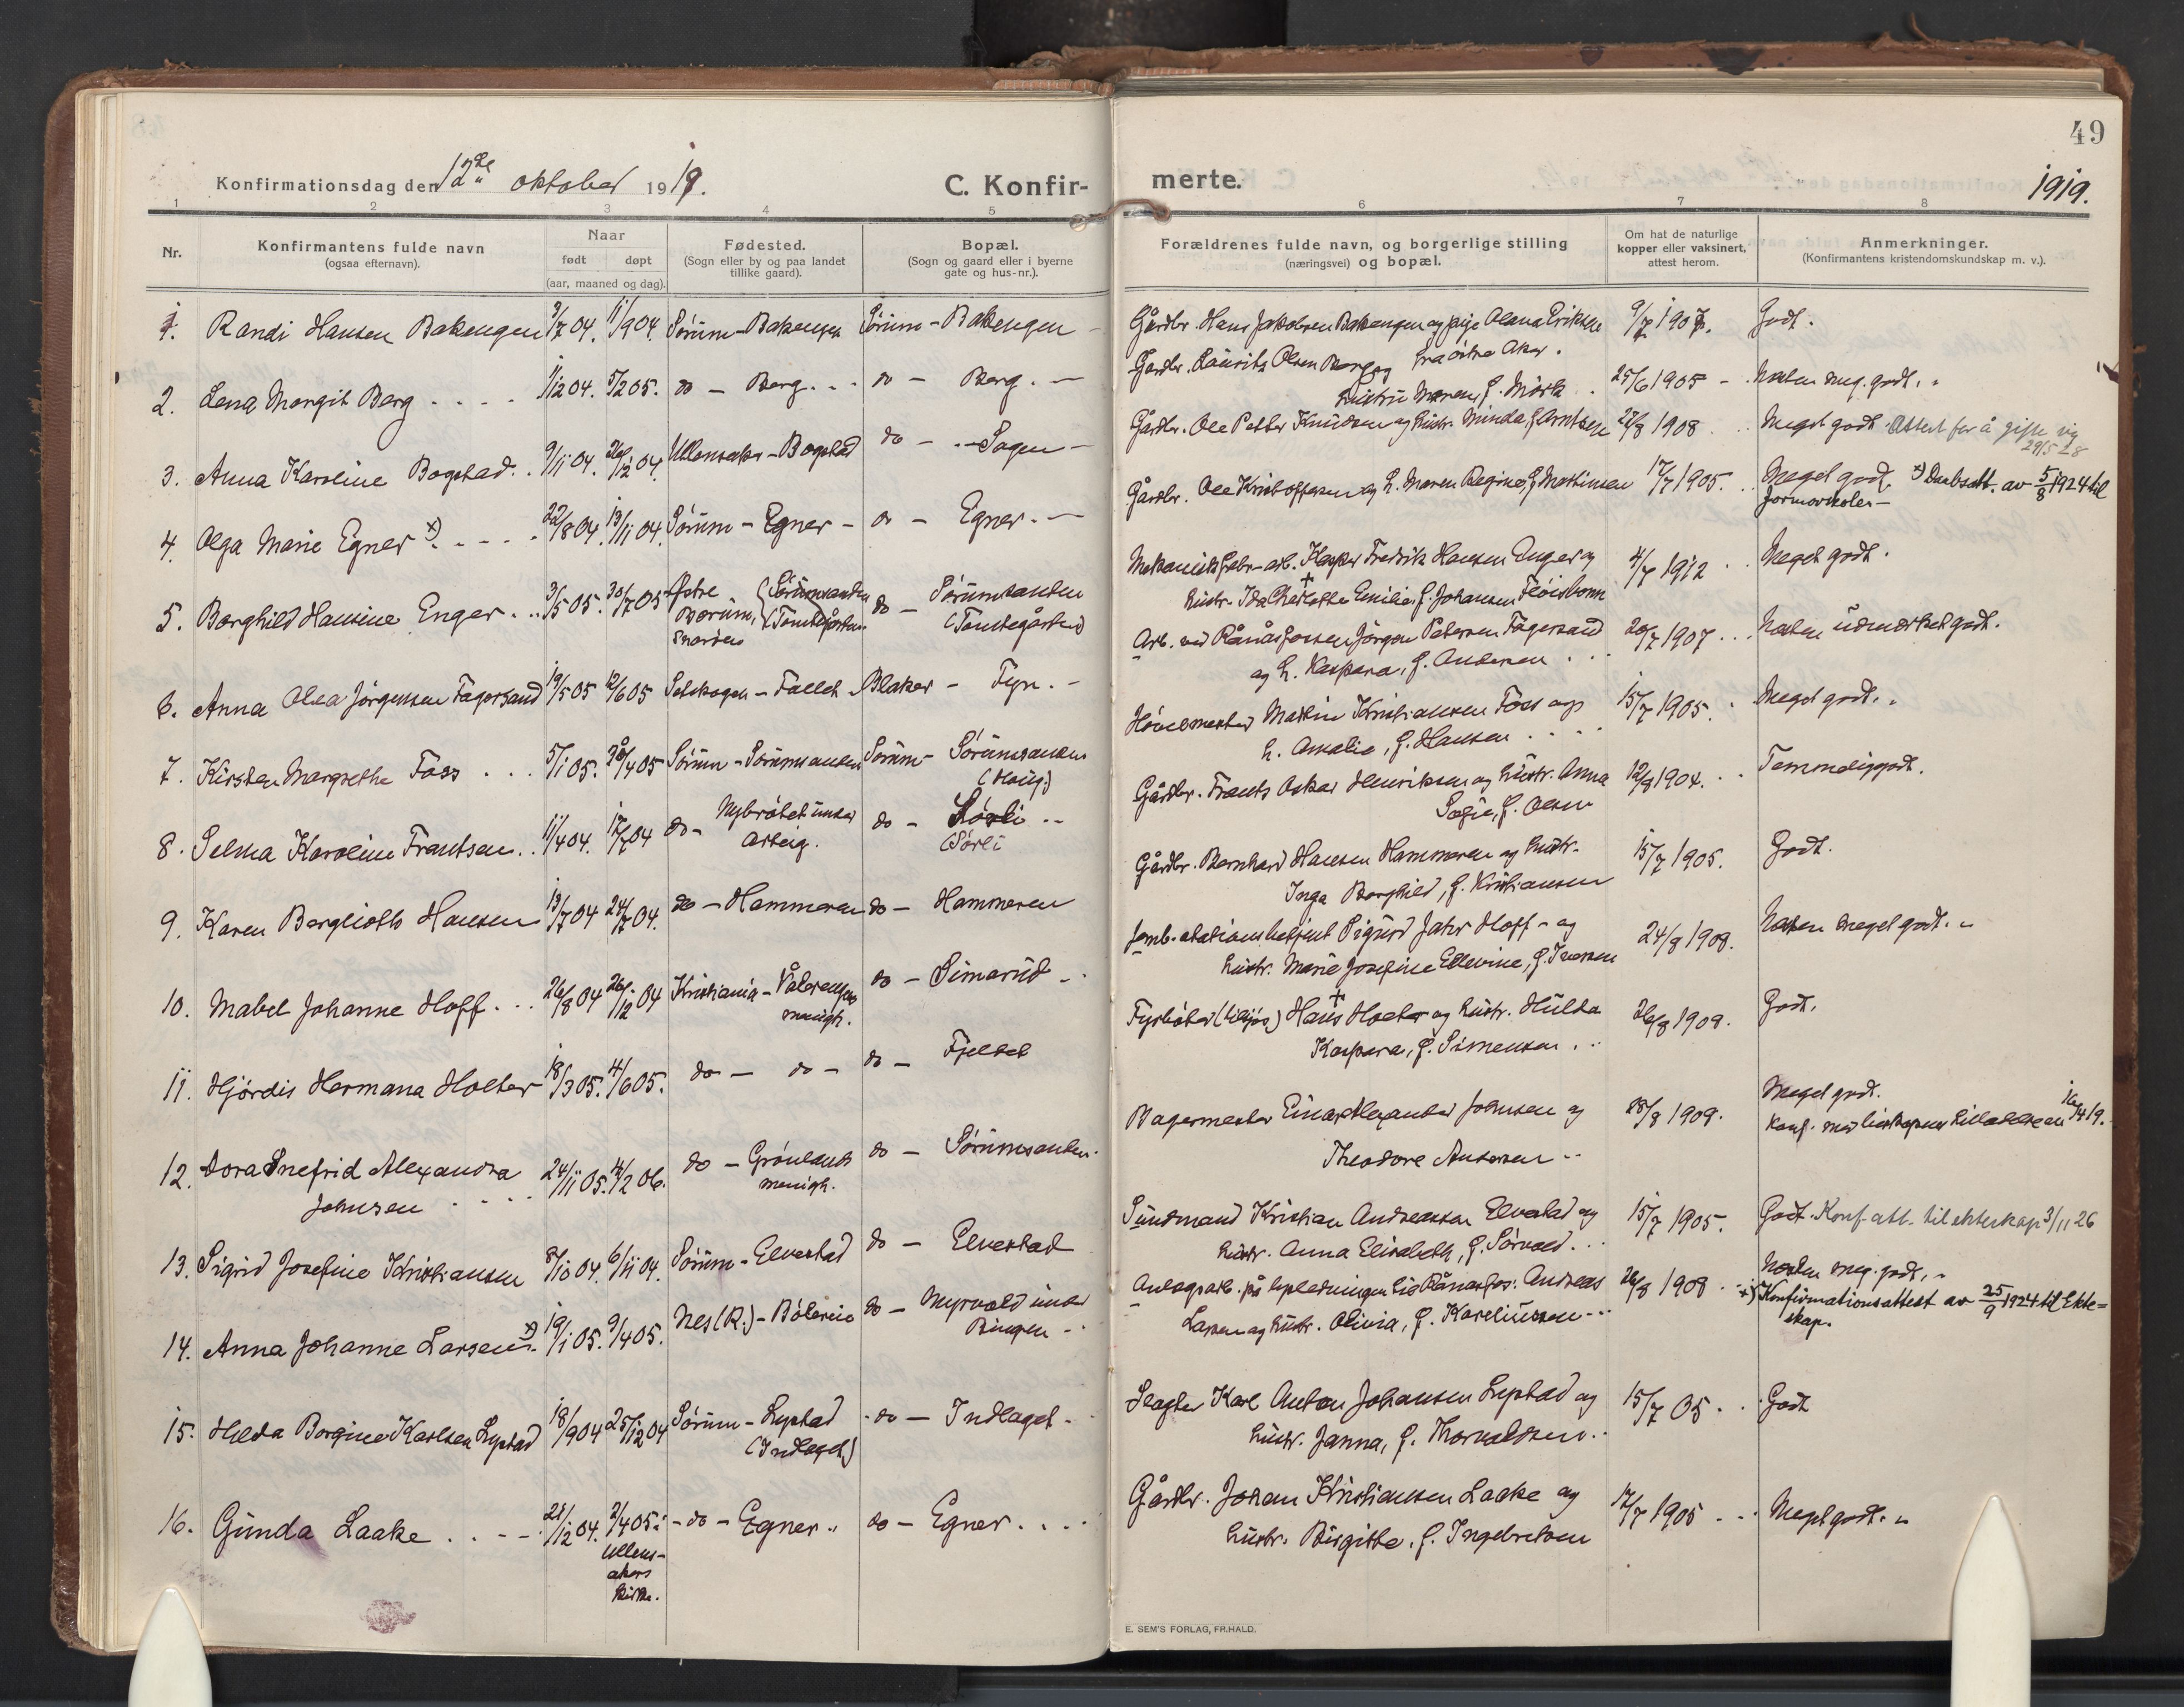 49
Konfirmationsdag den 12te oktober 1919.
C. Konfir-
merte.
1919.
1 2 3 4 5 6 7 8
Nr.
Konfirmantens fulde navn
(ogsaa efternavn).
Naar
født døpt
(aar, maaned og dag).
Fødested.
(Sogn eller by og paa landet
tillike gaard).
Bopæl.
(Sogn og gaard eller i byerne
gate og hus-nr.).
Forældrenes fulde navn, og borgerlige stilling
(næringsvei) og bopæl.
Om hat de naturlige
kopper eller vaksinert,
attest herom.
Anmerkninger.
(Konfirmantens kristendomskundskap m. v.).
1. Randi Hansen Bakengen 9/7 04. 11/9 04. Sörum - Bakengen Sörum - Bakengen
Gårdbr. Hans Jakobsen Bakengen og pige Olava Eriksen
fra östre Aker.
9/7 1907. Godt.
2. Lena Margit Berg 1/12 04. 5/2 05. do - Berg do - Berg.
Gårdbr. Laurits Olsen Berg og
hustru Maren, f. Mörk
25/6 1905 Næsten meg. godt.
3. Anna Karoline Bogstad 9/11 04. 26/12 04. Ullensaker - Bogstad do - Sagen
Gårdbr. Ole Petter Knudsen og hustr. Minda, f. Arntsen
27/8 1908 Meget godt. Attest for å gifte sig
29/5 28
4. Olga Marie Egner x) 22/8 04. 13/11 04. Sörum - Egner do - Egner.
Gårdbr. Ole Kristoffersen og h. Maren Regine, f. Mathisen
17/7 1905. Meget godt. x) Daabsatt. av 5/8 1924 til
Jormorskolen
5. Borghild Hansine Enger 3/5 05. 30/7 05 Östre
Bærum, (Sörumsanden
(Tomtegården)
do - Sörumsanden
(Tomtegården)
Mekanisk fabr-arb. Kasper Fredrik Hansen Enger og
hustr. Ida Charlotte Emilie, f. Johansen Flöisbonn
4/7 1912 Meget godt.
6. Anna Olea Jörgensen Fagersand 19/5 05 12/6 05 Setskogen - Fallet Blaker - Fyn.
Arb. ved Rånåsfossen Jörgen Petersen Fagersand
og h. Kaspara, f. Andersen
20/7 1907 Næsten udmerket godt.
7. Kirsten Margrethe Foss 5/1 05. 30/4 05 Sörum - Sörumsanden Sörum - Sörumsanden
(Haug)
Martin Kristiansen Foss og
h. Amalie, f. Hansen
15/7 1905. Meget godt.
8. Selma Karoline Frantsen 11/4 04. 17/7 04 do - Nybrötet under
Arteig.
do - Sörli
(Sörli
Gårdbr. Frants Oskar Henriksen og hustr. Anna
Sofie, f. Olsen
12/8 1904. Temmelig godt.
9. Karen Berglioth Hansen 13/7 04 24/7 04. do - Hammeren do - Hammeren
Gårdbr. Bernhard Hansen Hammeren og hustr.
Inga Borghild, f. Kristiansen
15/7 1905. Godt.
10. Mabel Johanne Hoff 26/8 04 26/12 04 Kristiania - Vålerengens
menigh.
do - Simarud
Jernb.-stationsbetjent Sigurd Jahr Hoff - og
hustr. Marie Josefine Ellevine, f. Iversen
24/8 1909. Næsten meget godt.
11. Hjördis Hermana Holter 18/3 05. 4/6 05. do - do - do - Fjellet
Fyrböter (tilsjøs) Hans Holter og hustr. Hulda
Kaspara, f. Simensen
26/8 1909. Godt.
12. Dora Snefrid Alexandra
Johnsen
24/11 05. 4/2 06. do - Grönlands
menigh.
do - Sörumsanden
Bagermester Einar Alexander Johnsen og
Theodore Andersen
28/8 1909. Meget godt.
Konf. med biskopens tilladelse av 16/4 19.
13. Sigrid Josefine Kristiansen 8/10 04. 6/11 04. Sörum - Elvestad do - Elvestad
Sundmand Kristian Andreassen Elvestad og
hustr. Anna Elisabeth, f. Sörvald.
15/7 1905. Godt. Konf-att. til ekteskap 3/11 26
14. Anna Johanne Larsen x) 19/1 05. 9/4 05. Nes (R.) - Bölerein do - Myrvold under
Bingen
Anlegsarb. på kpledningen til Rånåsfos: Andreas
Larsen og hustr. Olivia, f. Kareliussen
26/8 1908 Næsten meg. godt.
x) Konfirmationsattest av 25/9 1924 til Ekte=
skap.
15. Hilda Borgine Karlsen Lystad 18/9 04 25/12 04 Sörum - Lystad
(Indlaget)
do - Indlaget
Slagter Karl Anton Johansen Lystad og
hustr. Janna, f. Thorvaldsen
15/7 05 Godt
16. Gunda Laake 21/12 04. 2/4 05 i
Ullens-
akers
kirke.
do - Egner do - Egner
Gårdbr. Johan Kristiansen Laake og
hustr. Birgitte, f. Ingebretsen
17/7 1905 Meget godt.
E. SEM'S FORLAG, FR.HALD.